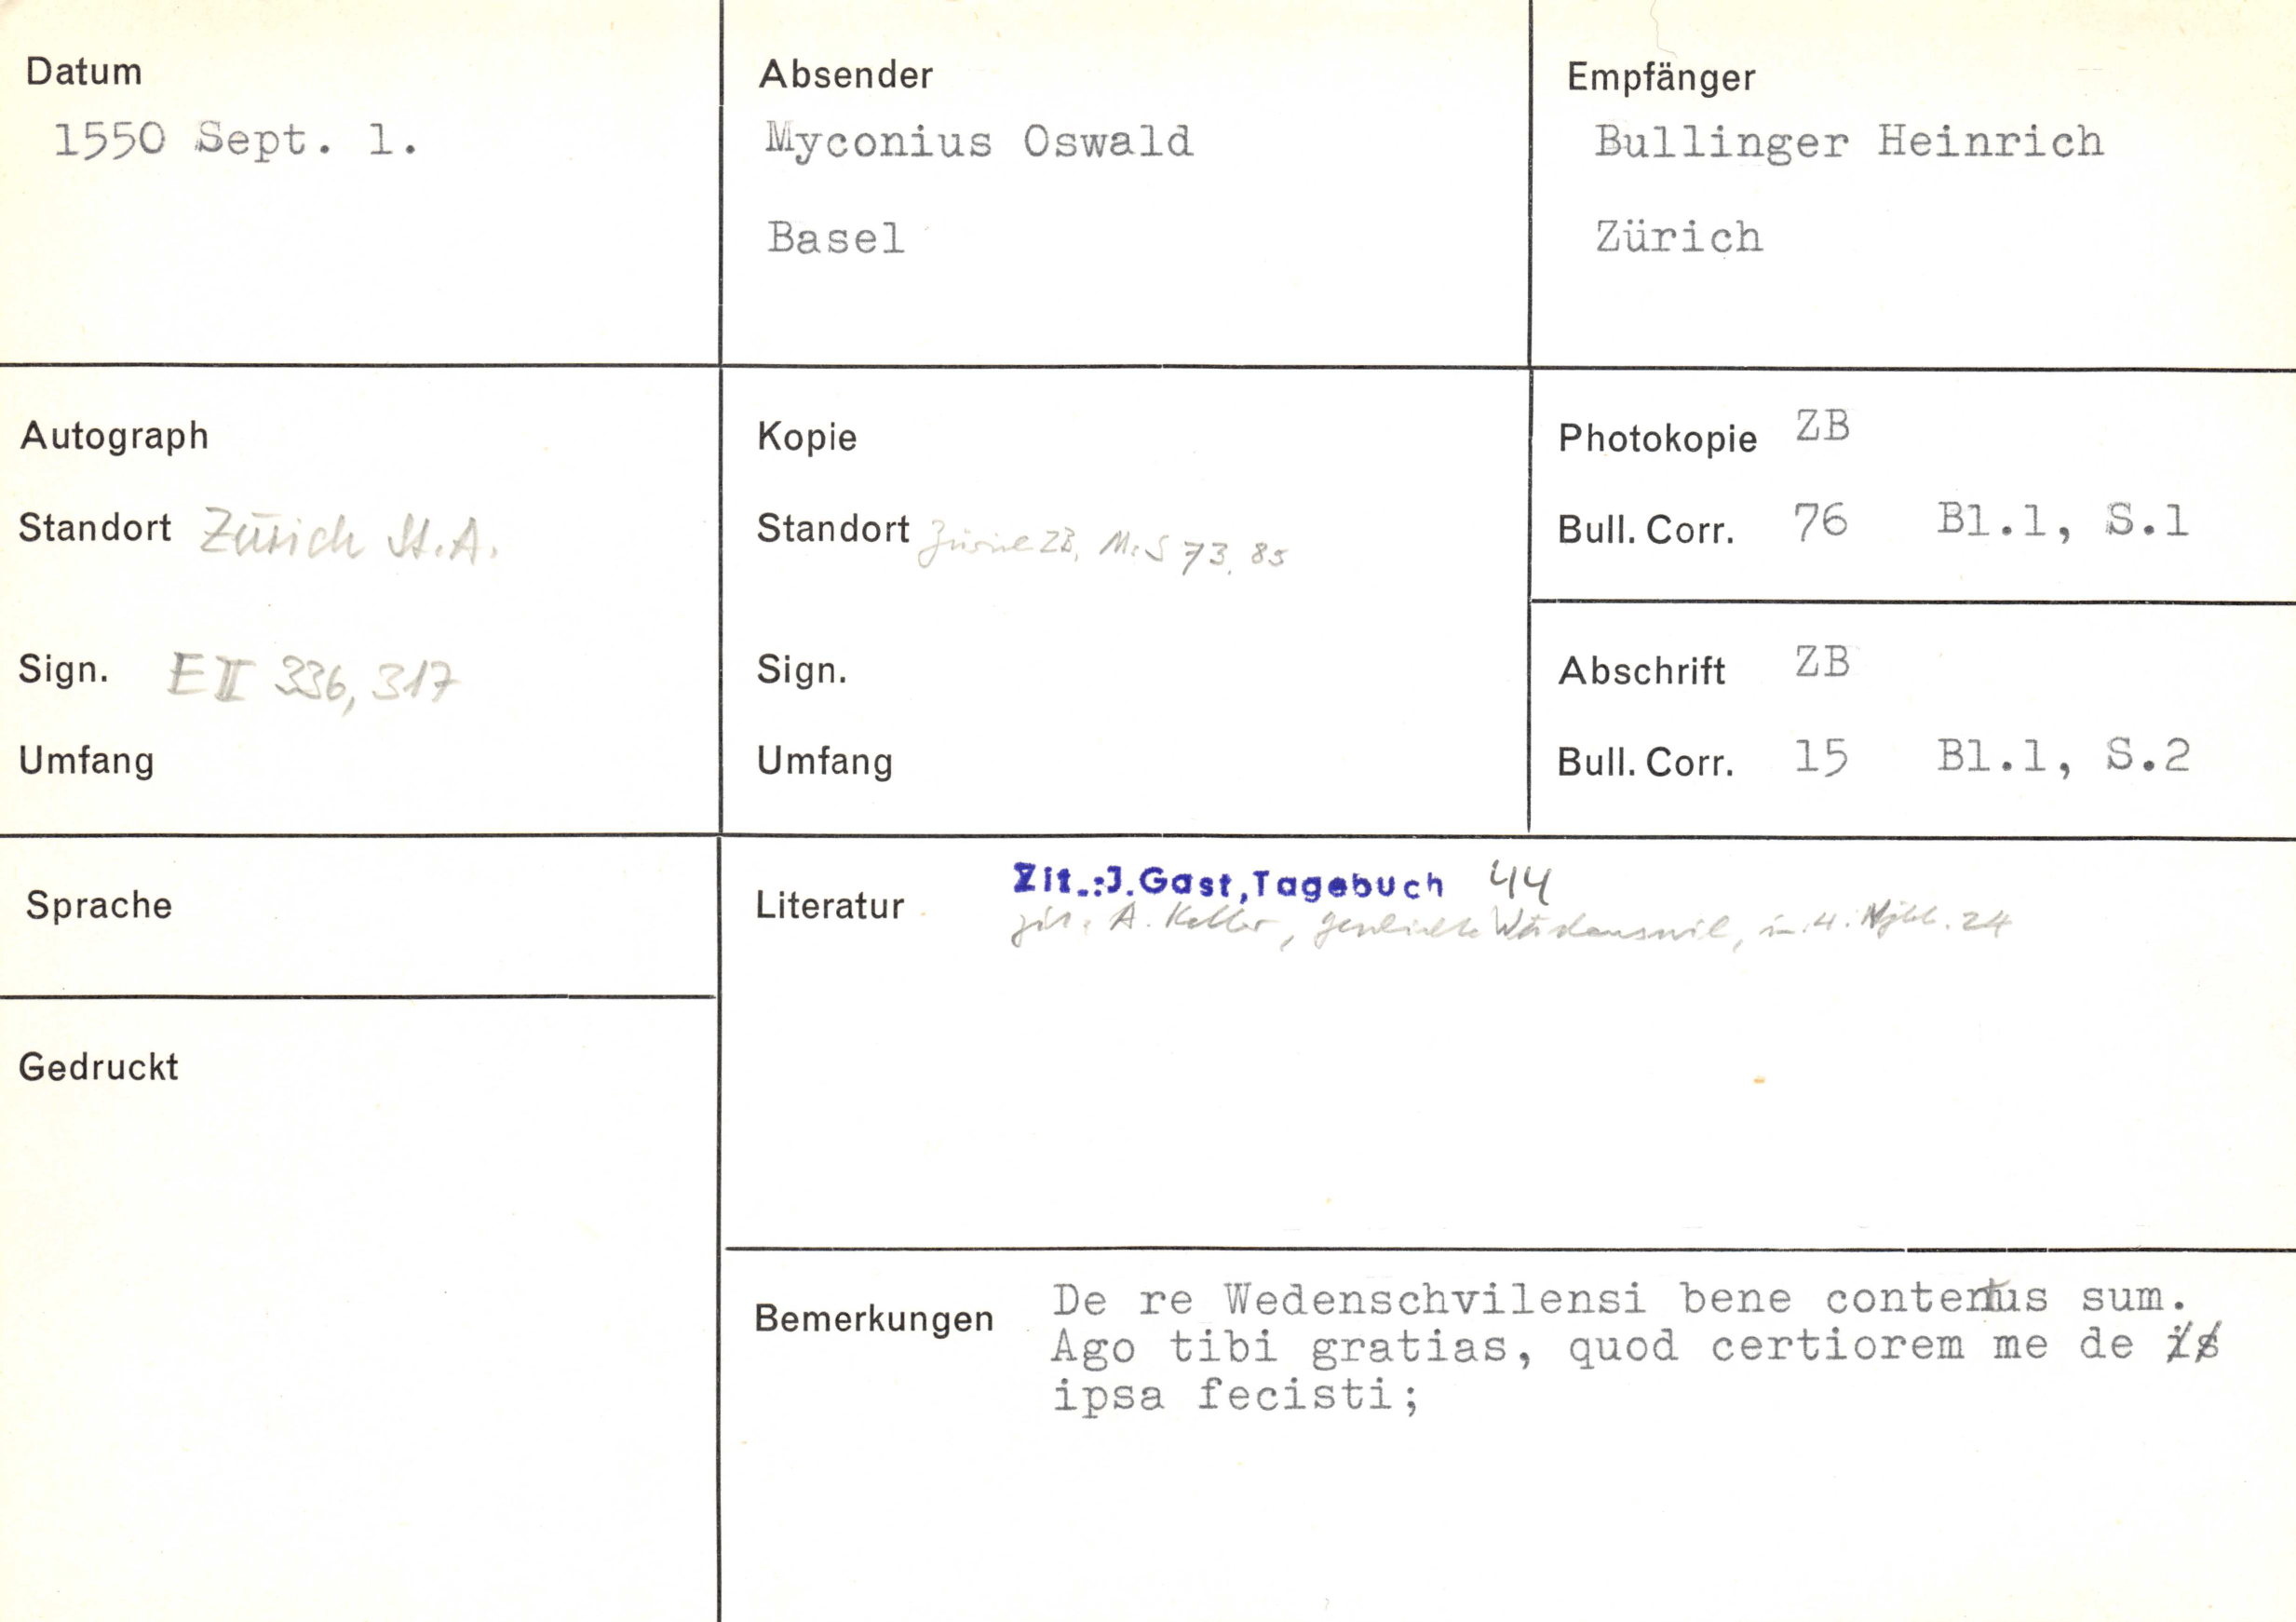 Datum
1550 Sept. 1.
Absender
Myconius Oswald
Basel
Empfänger
Bullinger Heinrich
Zürich
Autograph
Standort Zürich St.A.
Sign. E II 336, 317
Umfang
Kopie
Standort Zürich ZB, Ms S 73, 85
Sign.
Umfang
Photokopie ZB
Bull. Corr. 76 Bl.1, S.1
Abschrift ZB
Bull. Corr. 15 Bl.1, S.2
Sprache
Gedruckt
Literatur
Zit.:J.Gast,Tagebuch 44
zit. A. Keller, Wädenswil, in. 4. Njbl. 24
Bemerkungen
De re Wedenschvilensi bene contentus sum.
Ago tibi gratias, quod certiorem me de
ipsa fecisti;